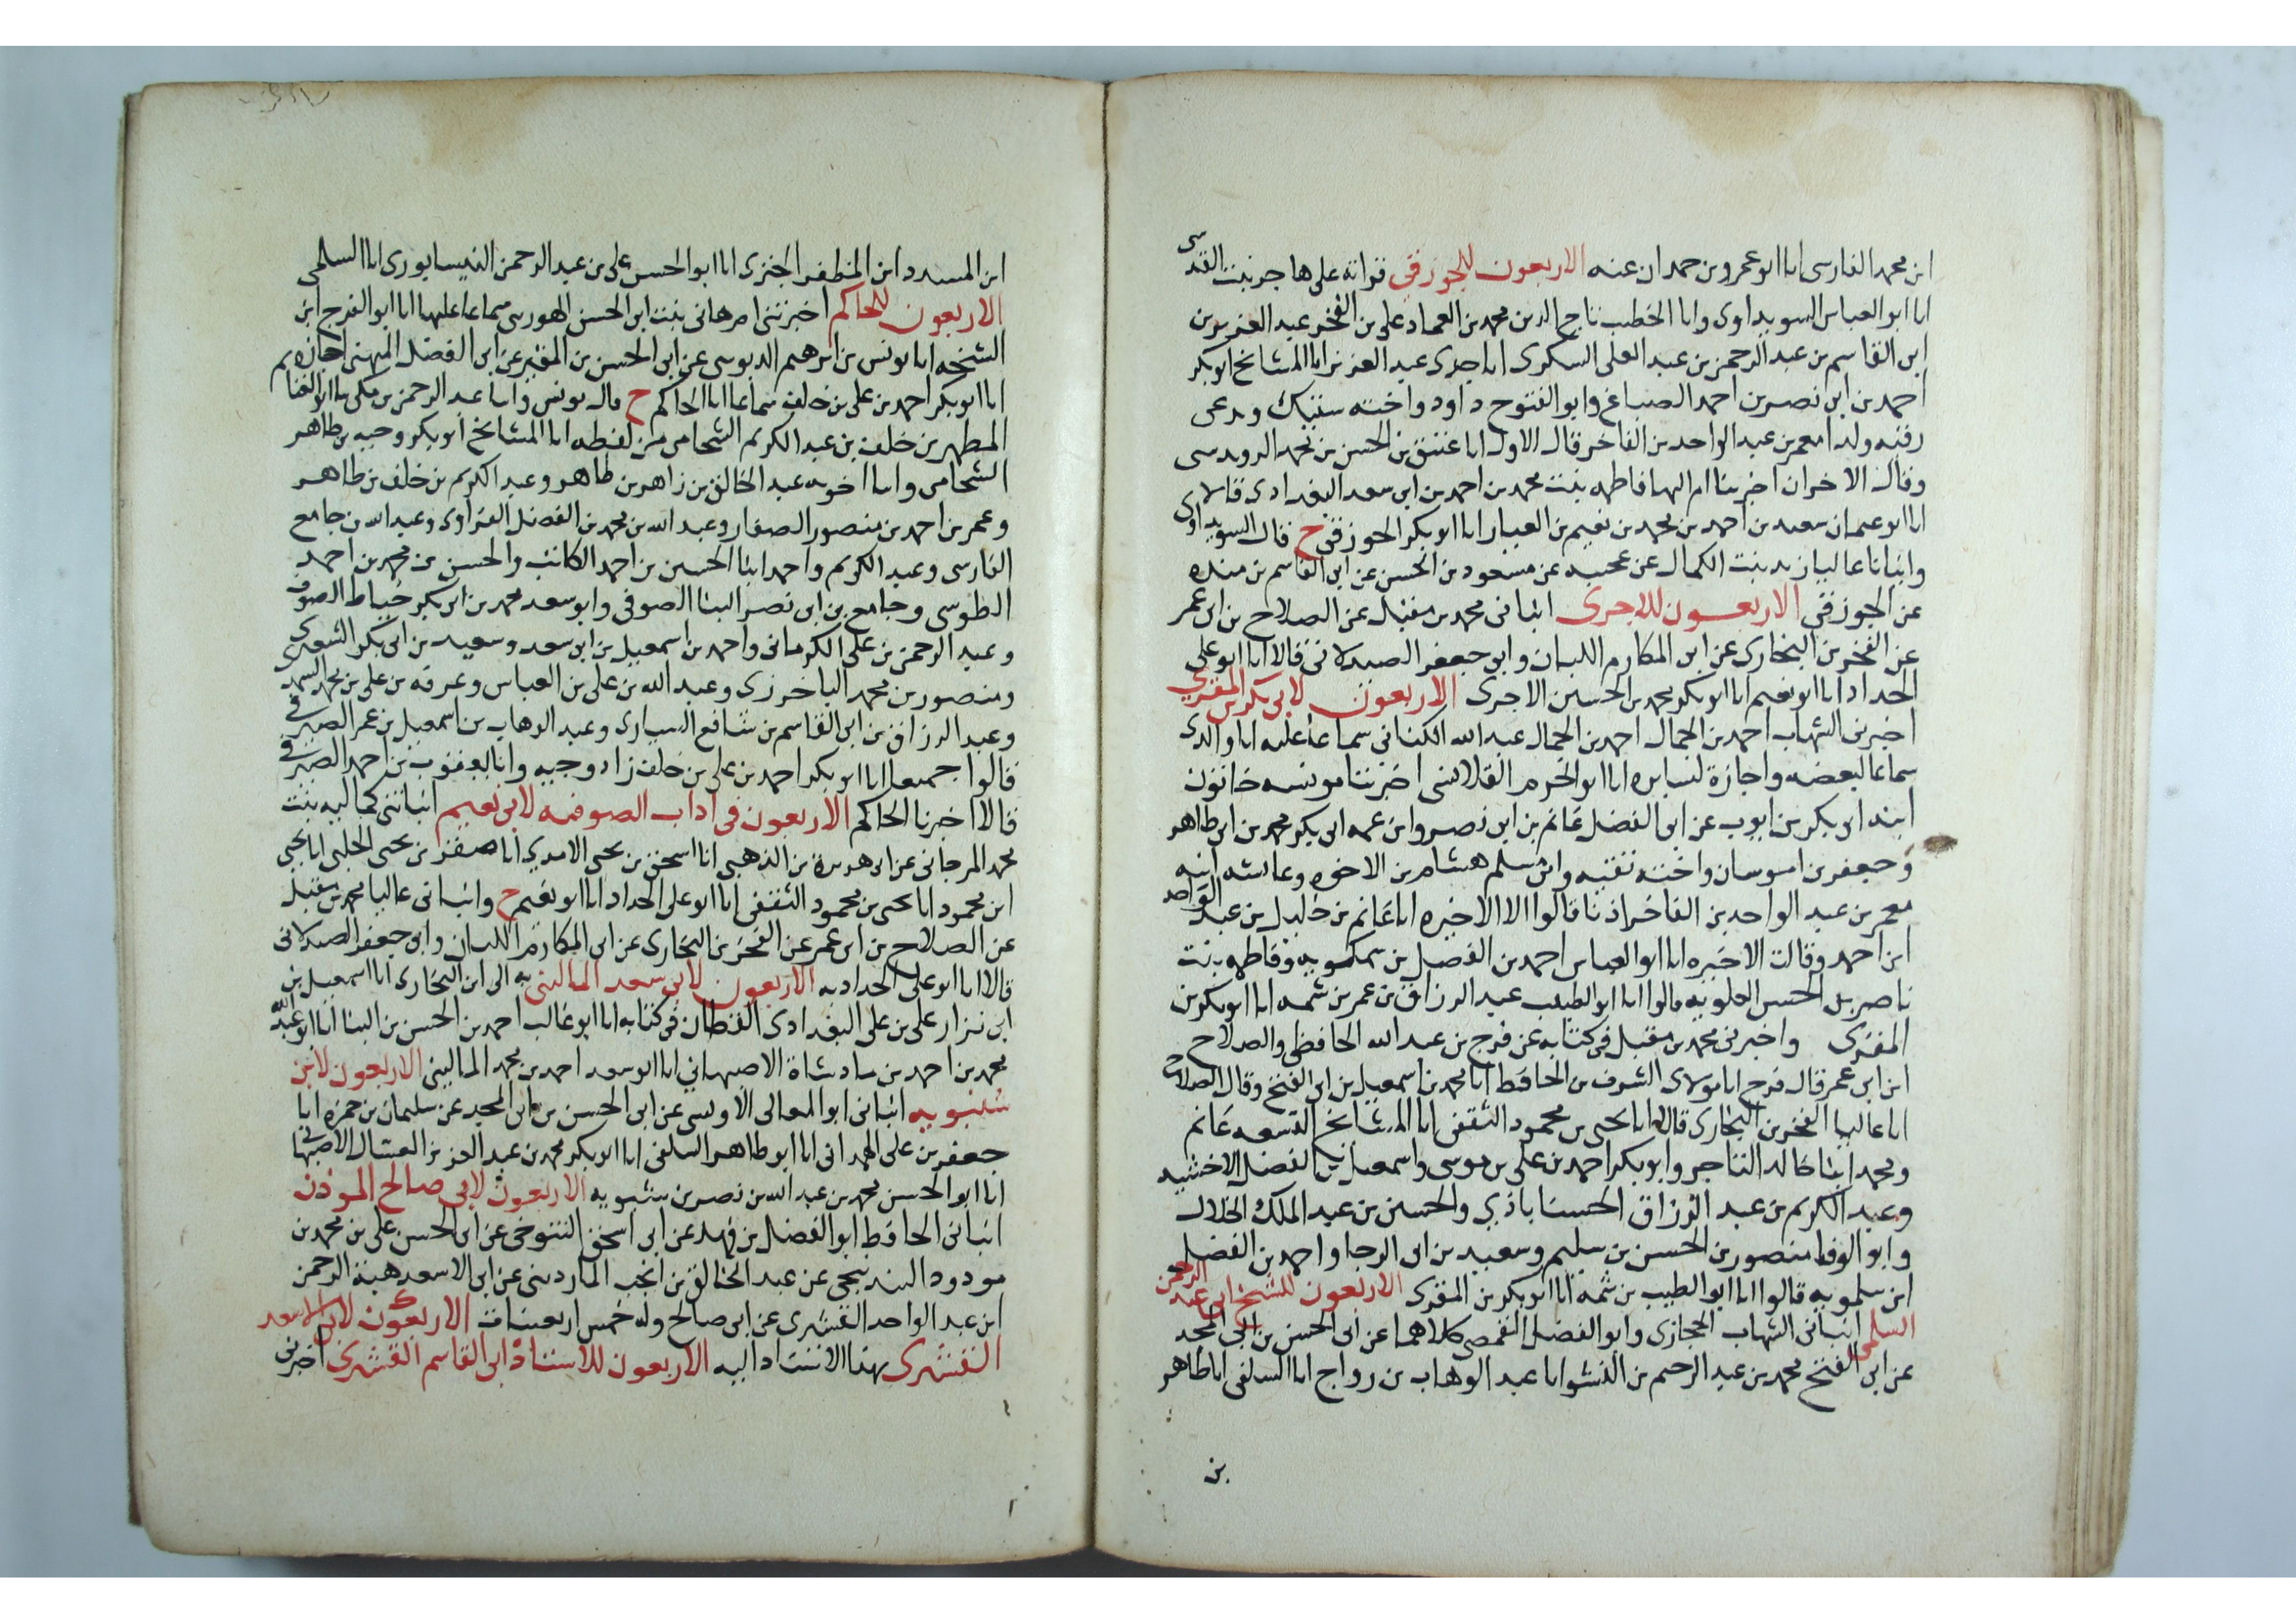 ابن محمد الفارسى انا ابو عمرو بن حمدان عنه الاربعون للجوزقى قراته على هاجر بنت القدسى
انا ابو العباس السويداوى وانا الخطيب تاج الدين محمد بن العماد على بن الفخر عبد العزيز بن
ابن القاسم بن عبد الرحمن بن عبد العلى السكرى انا جدى عبد العزيز انا المشايخ ابو بكر
احمد بن ابى نصر بن احمد الصباغ وابو الفتوح داود واخته ستيك وتدعى
رقيه ولدا معمر بن عبد الواحد بن الفاخر قال الاول انا عتيق بن الحسن بن محمد الرويدسى
وقال الاخران اخبرتنا ام البها فاطمه بنت محمد بن احمد بن ابى سعد البغدادى قالا
انا ابو عثمان سعيد بن احمد بن محمد بن نعيم بن العيار انا ابو بكر الجوزقى ح قال السويداوى
وانبانا عاليا زينب بنت الكمال عن عجيبه عن مسعود بن الحسن عن ابى القاسم بن منده
عن الجوزقى الاربعون للاجرى انبانى محمد بن مقبل عن الصلاح بن ابى عمر
عن الفخر بن البخارى عن ابى المكارم اللبان وابى جعفر الصيدلانى قالا انا ابو على
الحداد انا ابو نعيم انا ابو بكر محمد بن الحسين الاجرى الاربعون لابى بكر بن المقرى
اخبرنى الشهاب احمد بن الجمال احمد بن الجمال عبد الله الكنانى سماعا عليه انا والدى
سماعا لبعضه واجازة لسايره انا ابو الحرم القلانسى اخبرتنا مونسه خاتون
ابنه ابى بكر بن ايوب عن ابى الفضل غانم بن ابى نصر وابن عمه ابى بكر محمد بن ابى طاهر
وجعفر بن اموسان واخته تقيه وابن مسلم هشام بن الاخوه وعايشه ابنه
معمر بن عبد الواحد بن الفاخر اذنا قالوا الا الاخيره انا غانم بن خليل بن عبد الواحد
ابن احمد وقالت الاخيره انا ابو العباس احمد بن الفضل بن سمكويه وفاطمه بنت
ناصر بن الحسن العلويه قالوا انا ابو الطيب عبد الرزاق بن عمر بن شمه انا ابو بكر بن
المقرى واخبرنى محمد بن مقبل فى كتابه عن فرج بن عبد الله الحافظى والصلاح
ابن ابى عمر قال فرج انا مولاى الشرف بن الحافظ انا محمد بن اسمعيل بن ابى الفتح وقال الصلاح
انا عاليا الفخر بن البخارى قالا انا يحيى بن محمود الثقفى انا المشايخ التسعه غانم
ومحمد ابنا خالد التاجر وابو بكر احمد بن على بن موسى واسمعيل بن الفضل الاخشيد
وعبد الكريم بن عبد الرزاق الحسناباذى والحسين بن عبد الملك الخلال
وابو الوفا منصور بن الحسن بن سليم وسعيد بن ابى الرجا واحمد بن الفضل
ابن سلمويه قالوا انا ابو الطيب بن شمه انا ابو بكر بن المقرى الاربعون للشيخ ابى عبد الرحمن
السلمى انبانى الشهاب الحجازى وابو الفضل القمصى كلاهما عن ابى الحسن بن ابى المجد
عن ابى الفتح محمد بن عبد الرحيم بن النشو انا عبد الوهاب بن رواج انا السلفى انا طاهر
بن
ابن المسدد ابن المظفر الجنزى انا ابو الحسن على بن عبد الرحمن النيسابورى انا السلمى
الاربعون للحاكم اخبرتنى ام هانى بنت ابى الحسن الهورينى سماعا عليها انا ابو الفرج ابن
الشيخه انا يونس بن ابرهيم الدبوسى عن ابى الحسن بن المقير عن ابى الفضل الميهنى اجازه
انا ابو بكر احمد بن على بن خلف سماعا انا الحاكم ح قال يونس وانبا عبد الرحمن بن مكى انا ابو الفنا
المطهر بن خلف بن عبد الكريم الشحامى من لفظه انا المشايخ ابو بكر وجيه بن طاهر
الشحامى وانبا اخويه عبد الخالق بن زاهر بن طاهر وعبد الكريم بن خلف بن طاهر
وعمر بن احمد بن منصور الصفار وعبد الله بن محمد بن الفضل الفراوى وعبد الله بن جامع
الفارسى وعبد الكريم واحمد ابنا الحسين بن احمد الكاتب والحسن بن محمد بن احمد
الطوسى وجامع بن ابى نصر البنا الصوفى وابو سعد محمد بن ابى بكر خياط الصوف
وعبد الرحمن بن على الكرمانى واحمد بن اسمعيل بن ابى سعد وسعيد بن ابى بكر الشعرى
ومنصور بن محمد الباخرزى وعبد الله بن على بن العباس وعرفه بن على بن محمد السمد
وعبد الرزاق بن ابى القاسم بن شافع السيارى وعبد الوهاب بن اسمعيل بن عمر الصيرفى
قالوا جميعا انا ابو بكر احمد بن على بن خلف زاد وجيه وانا يعقوب بن احمد الصيرفى
قالا اخبرنا الحاكم الاربعون فى اداب الصوفيه لابى نعيم انبانتنى كماليه بنت
محمد المرجانى عن ابى هريرة بن الذهبى انا اسحق بن يحيى الامدى انا صقر بن يحيى الحلبى انا يحيى
ابن محمود انا يحيى بن محمود الثقفى انا ابو على الحداد انا ابو نعيم ح وانبانى عاليا محمد بن مقبل
عن الصلاح بن ابى عمر عن الفخر بن البخارى عن ابى المكارم اللبان وابى جعفر الصيدلانى
قالا انا ابو على الحداد به الاربعون لابى سعد المالينى به الى ابن البخارى انا اسمعيل بن
ابى نزار على بن على البغدادى القطان فى كتابه انا ابو غالب احمد بن الحسن بن البنا انا ابو عبد الله
محمد بن احمد بن ساد شاة الاصبهانى انا ابو سعد احمد بن محمد المالينى الاربعون لابن
شنبويه انبانى ابو المعالى الاويسى عن ابى الحسن بن ابى المجد عن سليمان بن حمزه انا
جعفر بن على الهمدانى انا ابو طاهر السلفى انا ابو بكر محمد بن عبد العزيز العسال الاصبهانى
انا ابو الحسن محمد بن عبد الله بن نصر بن شنبويه الاربعون لابى صالح الموذن
انبانى الحافظ ابو الفضل بن فهد عن ابى اسحق التنوخى عن ابى الحسن على بن محمد بن
مودود البندنيجى عن عبد الخالق بن انجب الماردينى عن ابى الاسعد هبة الرحمن
ابن عبد الواحد القشيرى عن ابى صالح وله خمس اربعينات الاربعون لابى الاسعد
القشيرى بهذا الاسناد اليه الاربعون للاستاذ ابى القاسم القشيرى اخبرنى